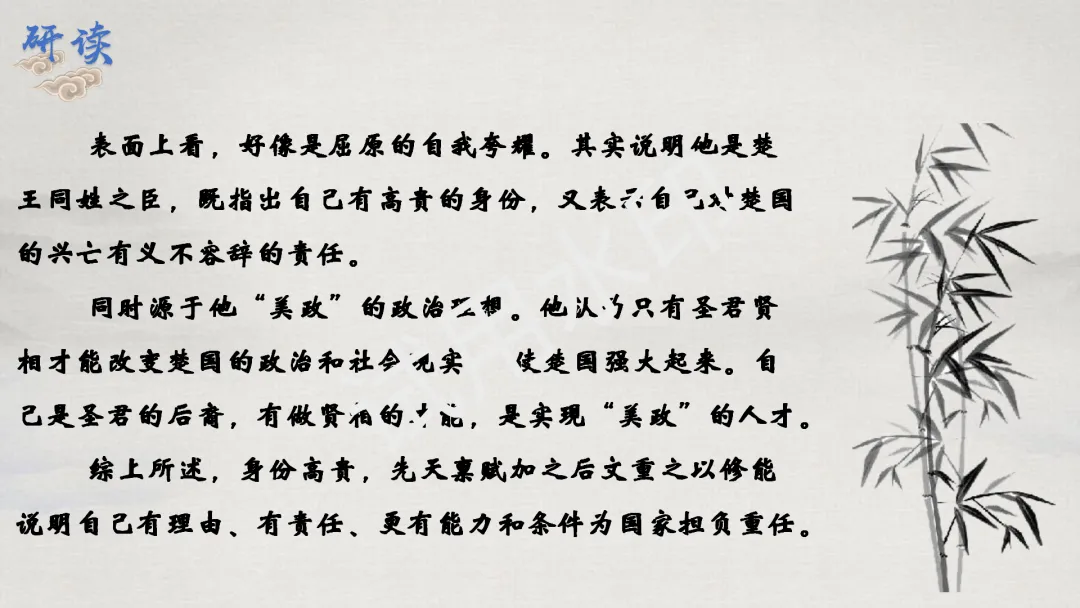 研读
表面上看，好像是屈原的自我夸耀。其实说明他是楚
王同姓之臣，既指出自己有高贵的身份，又表示自己对楚国
的兴亡有义不容辞的责任。
同时源于他“美政”的政治理想。他认为只有圣君贤
相才能改变楚国的政治和社会现实 使楚国强大起来。自
己是圣君的后裔，有做贤相的才能，是实现“美政”的人才。
综上所述，身份高贵，先天禀赋加之后文重之以修能
说明自己有理由、有责任、更有能力和条件为国家担负重任。